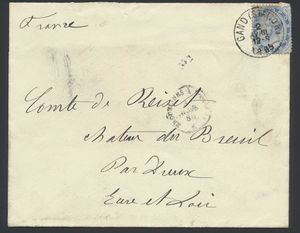 France
GAND
Comte de Reiset
chateau du Breuil
Par Dreux
Eure et Loir